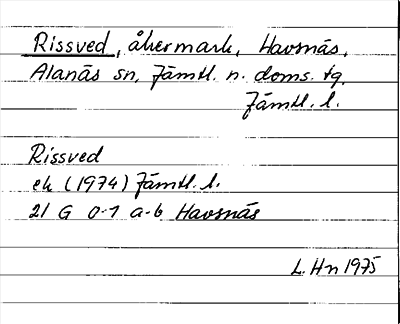 Rissved, åkermark, Havsnäs,
Alanäs sn, Jämtl. n. doms. tg.
Jämtl. l.
Rissved
ek (1974) Jämtl. l.
21 G 0-1 a-b Havsnäs
L. Hn 1975